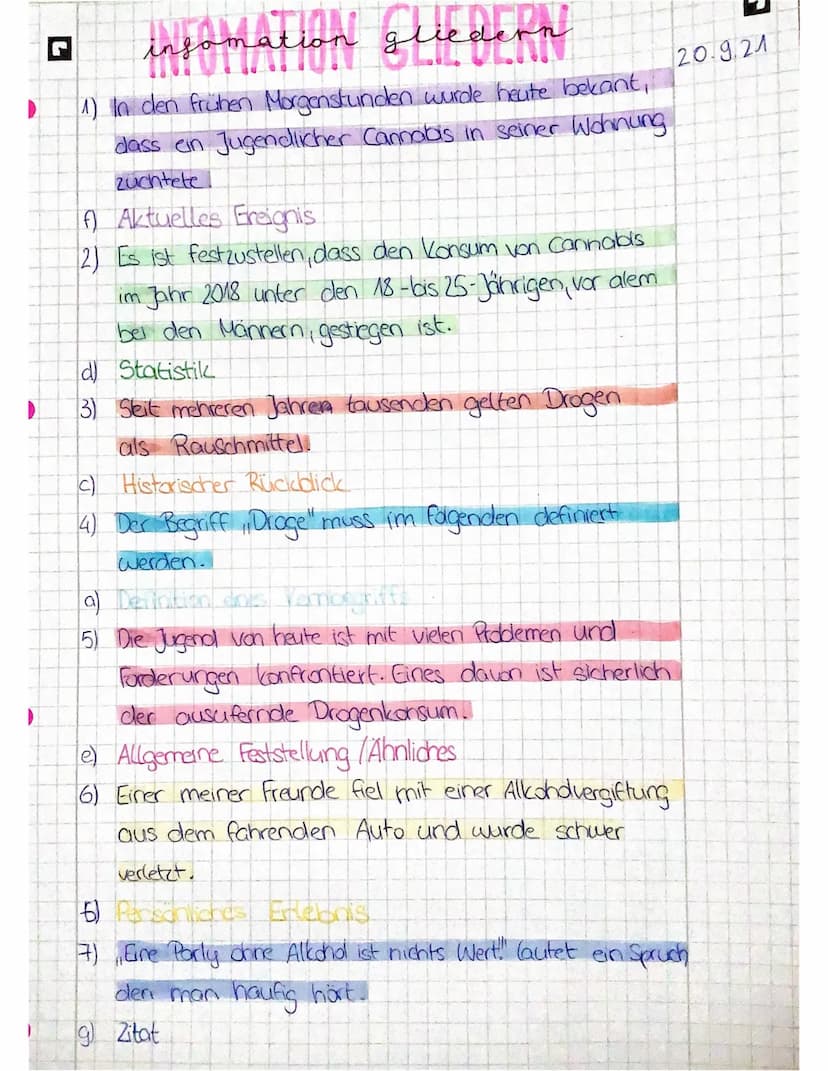 INFOMATION GLIEDERN
infomation gliedern
20.9.21
1) In den frühen Morgenstunden wurde heute bekant,
dass ein Jugendlicher Cannabis in seiner Wohnung
züchtete.
f) Aktuelles Ereignis
2) Es ist festzustellen, dass den Konsum von Cannabis
im Jahr 2018 unter den 18-bis 25-Jährigen, vor alem
bei den Männern, gestiegen ist.
d) Statistik
3) Seit mehreren Jahren tausenden gelten Drogen
als Rauschmittel.
c) Historischer Rückblick
4) Der Begriff „Droge" muss im folgenden definiert
werden.
a) Definition eines
5) Die Jugend von heute ist mit vielen Problemen und
Forderungen konfrontiert. Eines davon ist sicherlich
der ausufernde Drogenkonsum.
e) Allgemeine Feststellung /Ähnliches
6) Einer meiner Freunde fiel mit einer Alkoholvergiftung
aus dem fahrenden Auto und wurde schwer
verletzt.
b) Persönliches Erlebnis
7) „Eine Party ohne Alkohol ist nichts Wert!" lautet ein Spruch
den man haufig hört.
g) Zitat